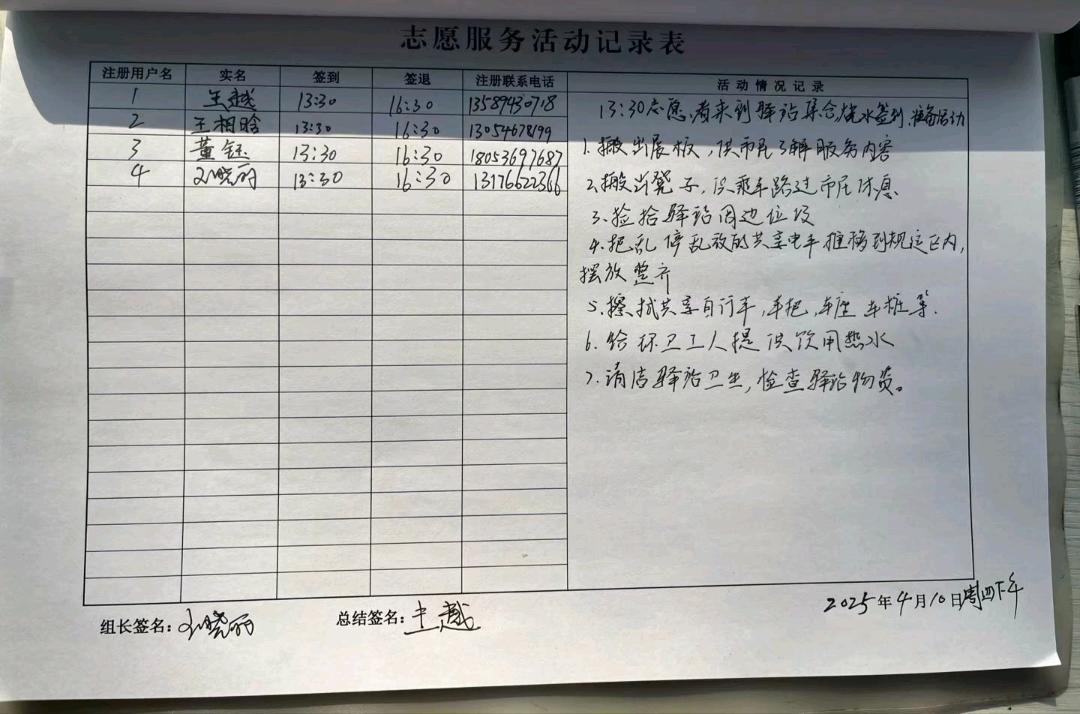 志愿服务活动记录表
注册用户名 实名 签到 签退 注册联系电话 活动情况记录
1 王越 13:30 16:30 13589430718
2 王相晗 13:30 16:30 13054678199
3 董钰 13:30 16:30 18053697687
4 孙晓丽 13:30 16:30 13176622366
13:30志愿者来到驿站集合烧水签到,准备活动
1.搬出展板,供市民了解服务内容
2.搬出凳子,供乘车路过市民休息
3.捡拾驿站周边垃圾
4.把乱停乱放的共享电车推移到规定区内,
摆放整齐
5.擦拭共享自行车,车把,车座 车桩等.
6.给环卫工人提供饮用热水
7.清洁驿站卫生,检查驿站物资。
2025年4月10日周四下午
组长签名:孙晓丽 总结签名:王越